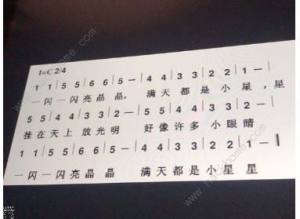 1=C 2/4
1 1 5 5 6 6 5 - 4 4 3 3 2 2 1 -
一闪一闪亮晶晶， 满天都是小星，星
5 5 4 4 3 3 2 - 5 5 4 4 3 3 2 -
挂在天上 放光明 好像许多 小眼睛
1 1 5 5 6 6 5 - 4 4 3 3 2 2 1 -
一闪一闪亮晶晶 满天都是小星 星